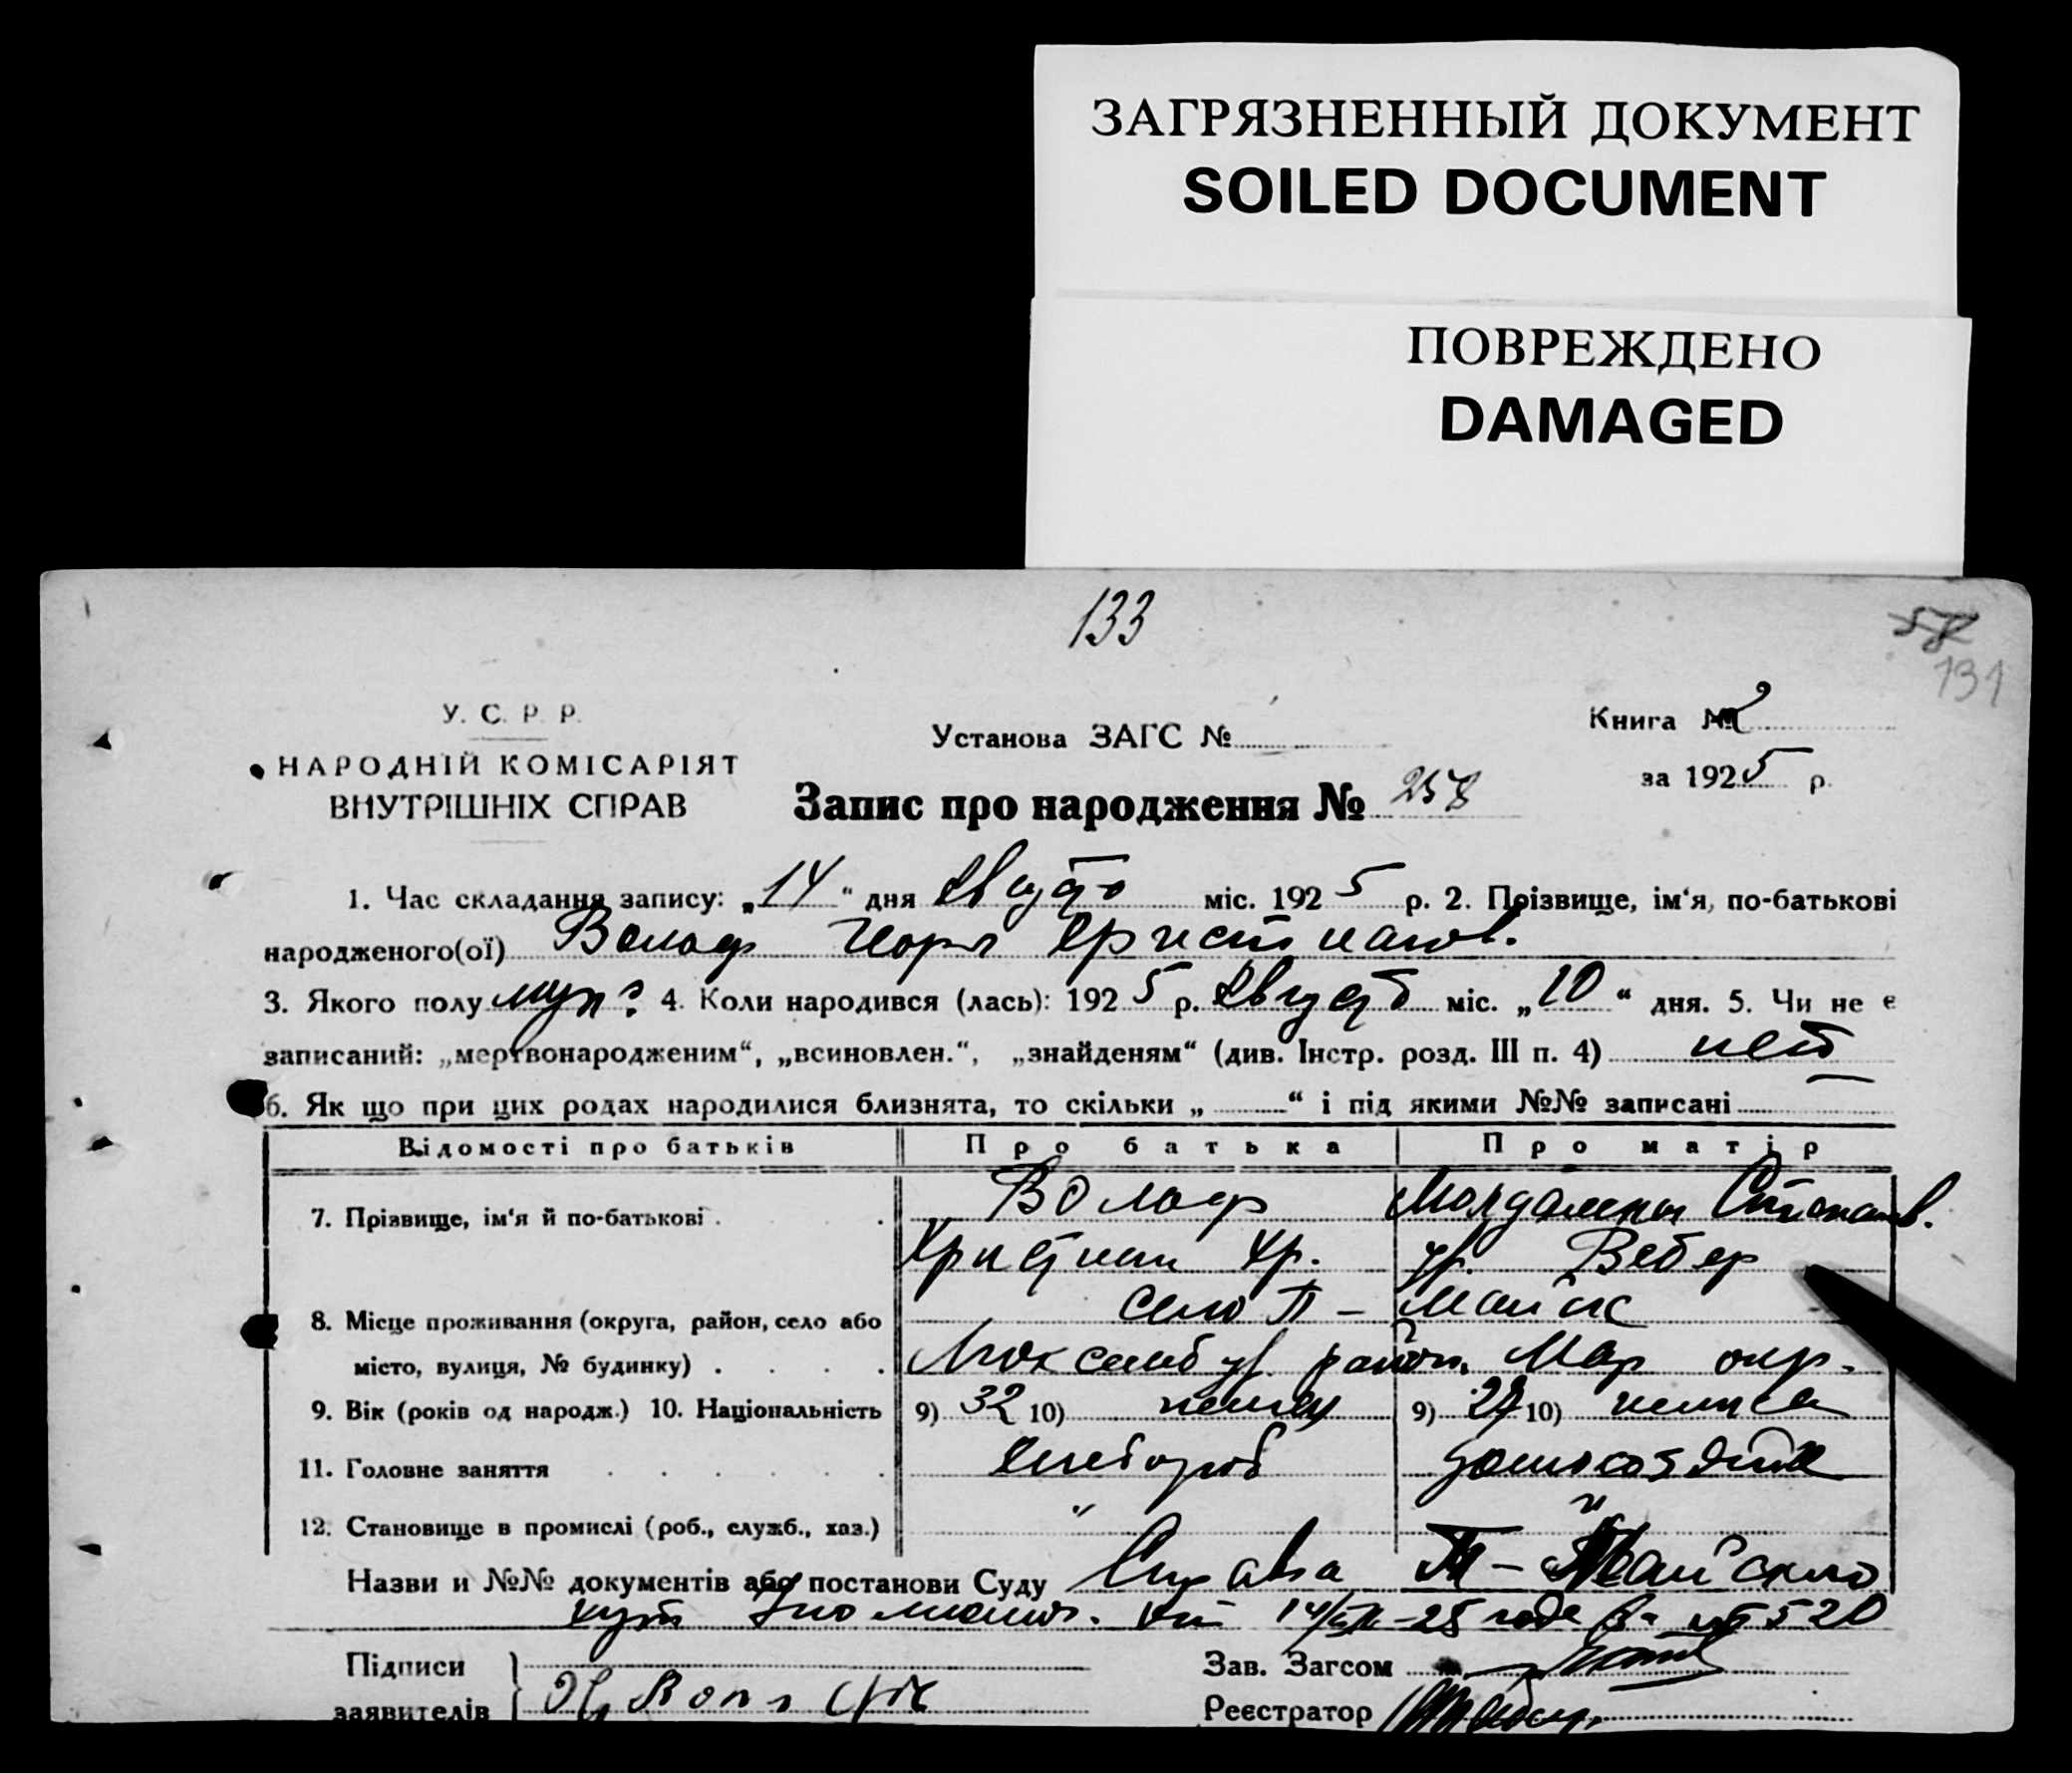 ЗАГРЯЗНЕННЫЙ ДОКУМЕНТ
SOILED DOCUMENT
ПОВРЕЖДЕНО
DAMAGED
133
58
131
У. С. Р. Р.
НАРОДНІЙ КОМІСАРІЯТ
ВНУТРІШНІХ СПРАВ
Установа ЗАГС №
Запис про народження № 258
Книга № 2
за 1925 р.
1. Час складання запису: „14“ дня августа міс. 1925 р. 2. Прізвище, ім‘я, по-батькові
народженого(ої) Вольф Христианов.
3. Якого полу муж. 4. Коли народився (лась): 1925 р. август міс. „10“ дня. 5. Чи не є
записаний: „мертвонародженим“, „всиновлен.“, „знайденям“ (див. Інстр. розд. III п. 4) нет
6. Як що при цих родах народилися близнята, то скільки „ “ і під якими №№ записані
Відомості про батьків Про батька Про матір
7. Прізвище, ім‘я й по-батькові Вольф
Христиан Хр. ур. Вебер
8. Місце проживання (округа, район, село або село П-Майск
місто, вулиця, № будинку) Люксембур район. Мар окр.
9. Вік (років од народж.) 10. Національність 9) 32 10) немец 9) 10) немка
11. Головне заняття хлебороб домохоз
12. Становище в промислі (роб., служб., хаз.) "
Назви и №№ документів або постанови Суду П-Майского
14/ -25 года За № 520
Підписи
заявителів
Зав. Загсом
Реєстратор